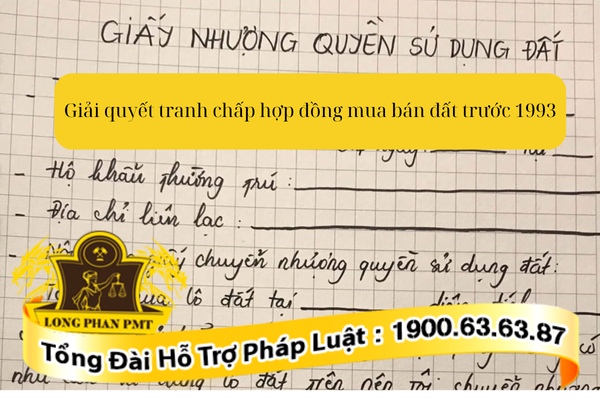 GIẤY NHƯỢNG QUYỀN SỬ DỤNG ĐẤT
Giải quyết tranh chấp hợp đồng mua bán đất trước 1993
- Hộ khẩu thường trú :
- Địa chỉ liên lạc :
chuyển nhượng quyền sử dụng đất:
lô đất tại
LONG PHAN PMT
Tổng Đài Hỗ Trợ Pháp Luật : 1900.63.63.87
có
như
lô đất trên nên tôi chuyển nhượng